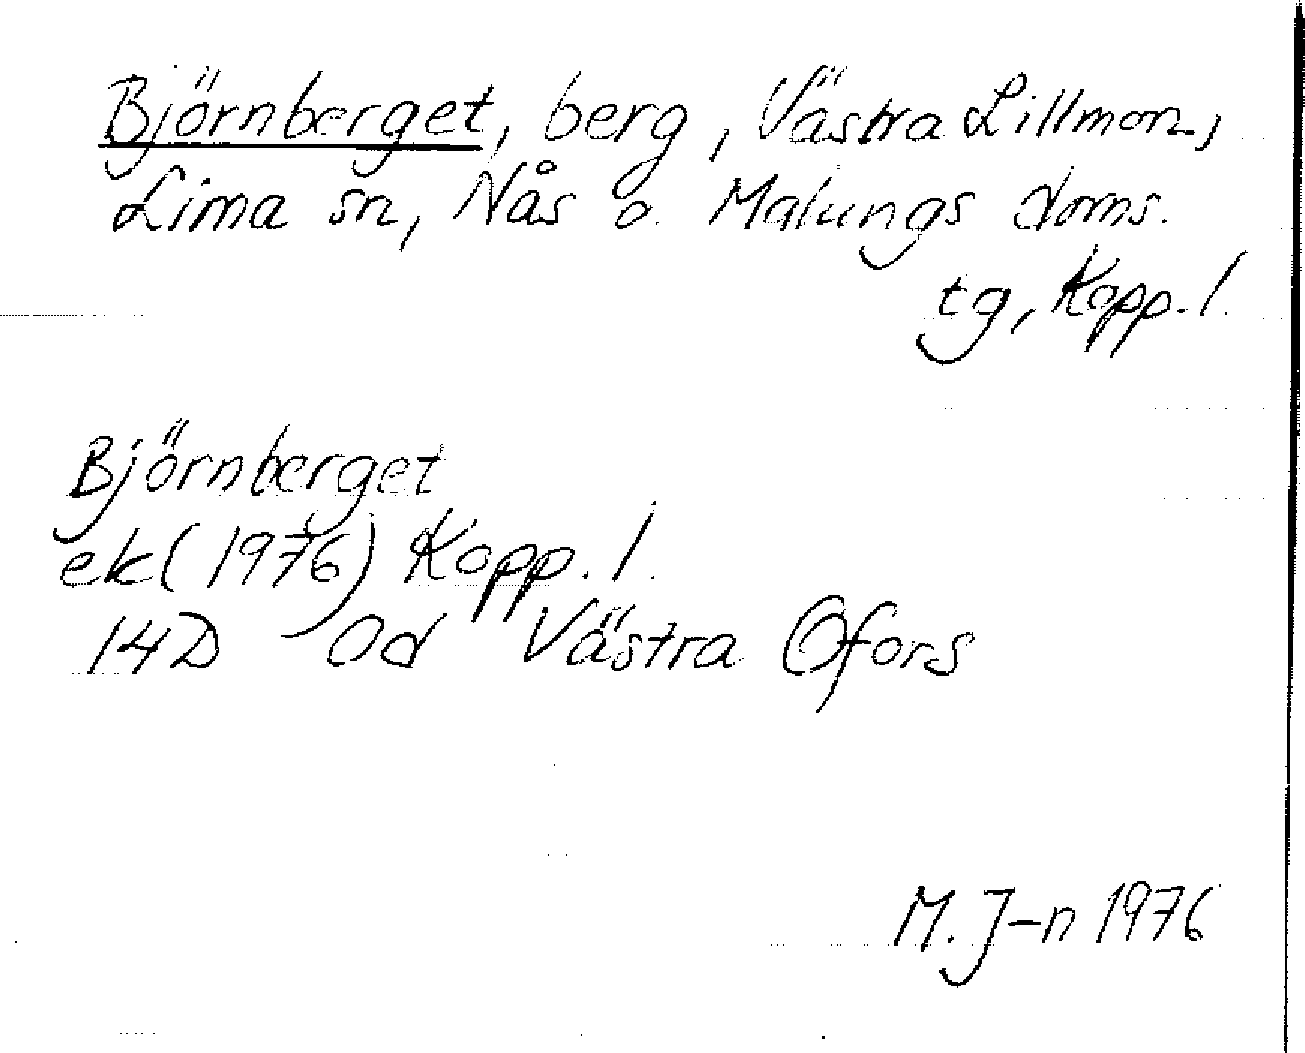 Björnberget, berg, Västra Lillmon,
Lima sn, Nås o. Malungs doms.
tg, Kopp. l.
Björnberget
ek (1976) Kopp. l.
14D 0d Västra Ofors
M. J-n 1976